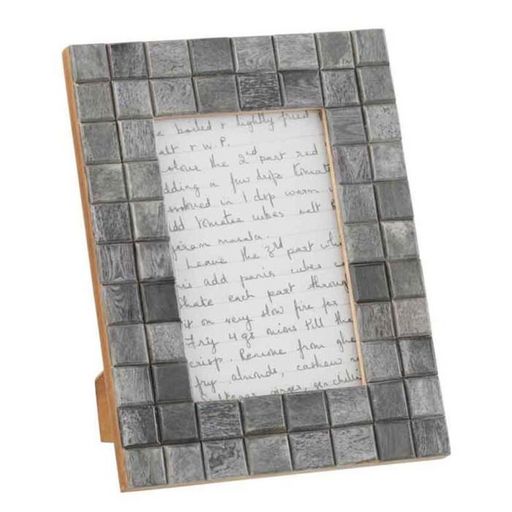 e boiled & lightly fried
alt & W.P.
olour the 2nd part red
dding a few drps tomato
in 1 dsp warm
dd tomatoe cubes salt &
garam masala.
Leave the 3rd part wh
s add paris cubes
Make each part through
it on very slow fire for
Fry 4 gs onions till the
crisp. Remove from
fry almonds, cashew n